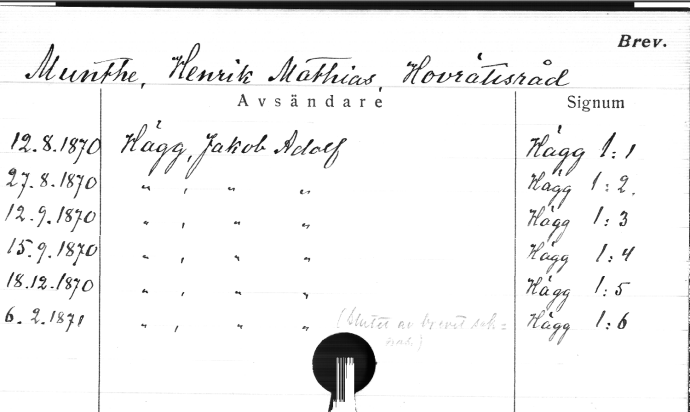 Brev.
Munthe, Henrik Mathias, Hovrättsråd
Avsändare Signum
12.8.1870 Hägg, Jakob Adolf Hägg 1:1
27.8.1870 " , " " Hägg 1:2.
12.9.1870 " , " " Hägg 1:3
15.9.1870 " , " " Hägg 1:4
18.12.1870 " , " " Hägg 1:5
6.2.1871 " , " " (Slutet av brevet sak= Hägg 1:6
nas)